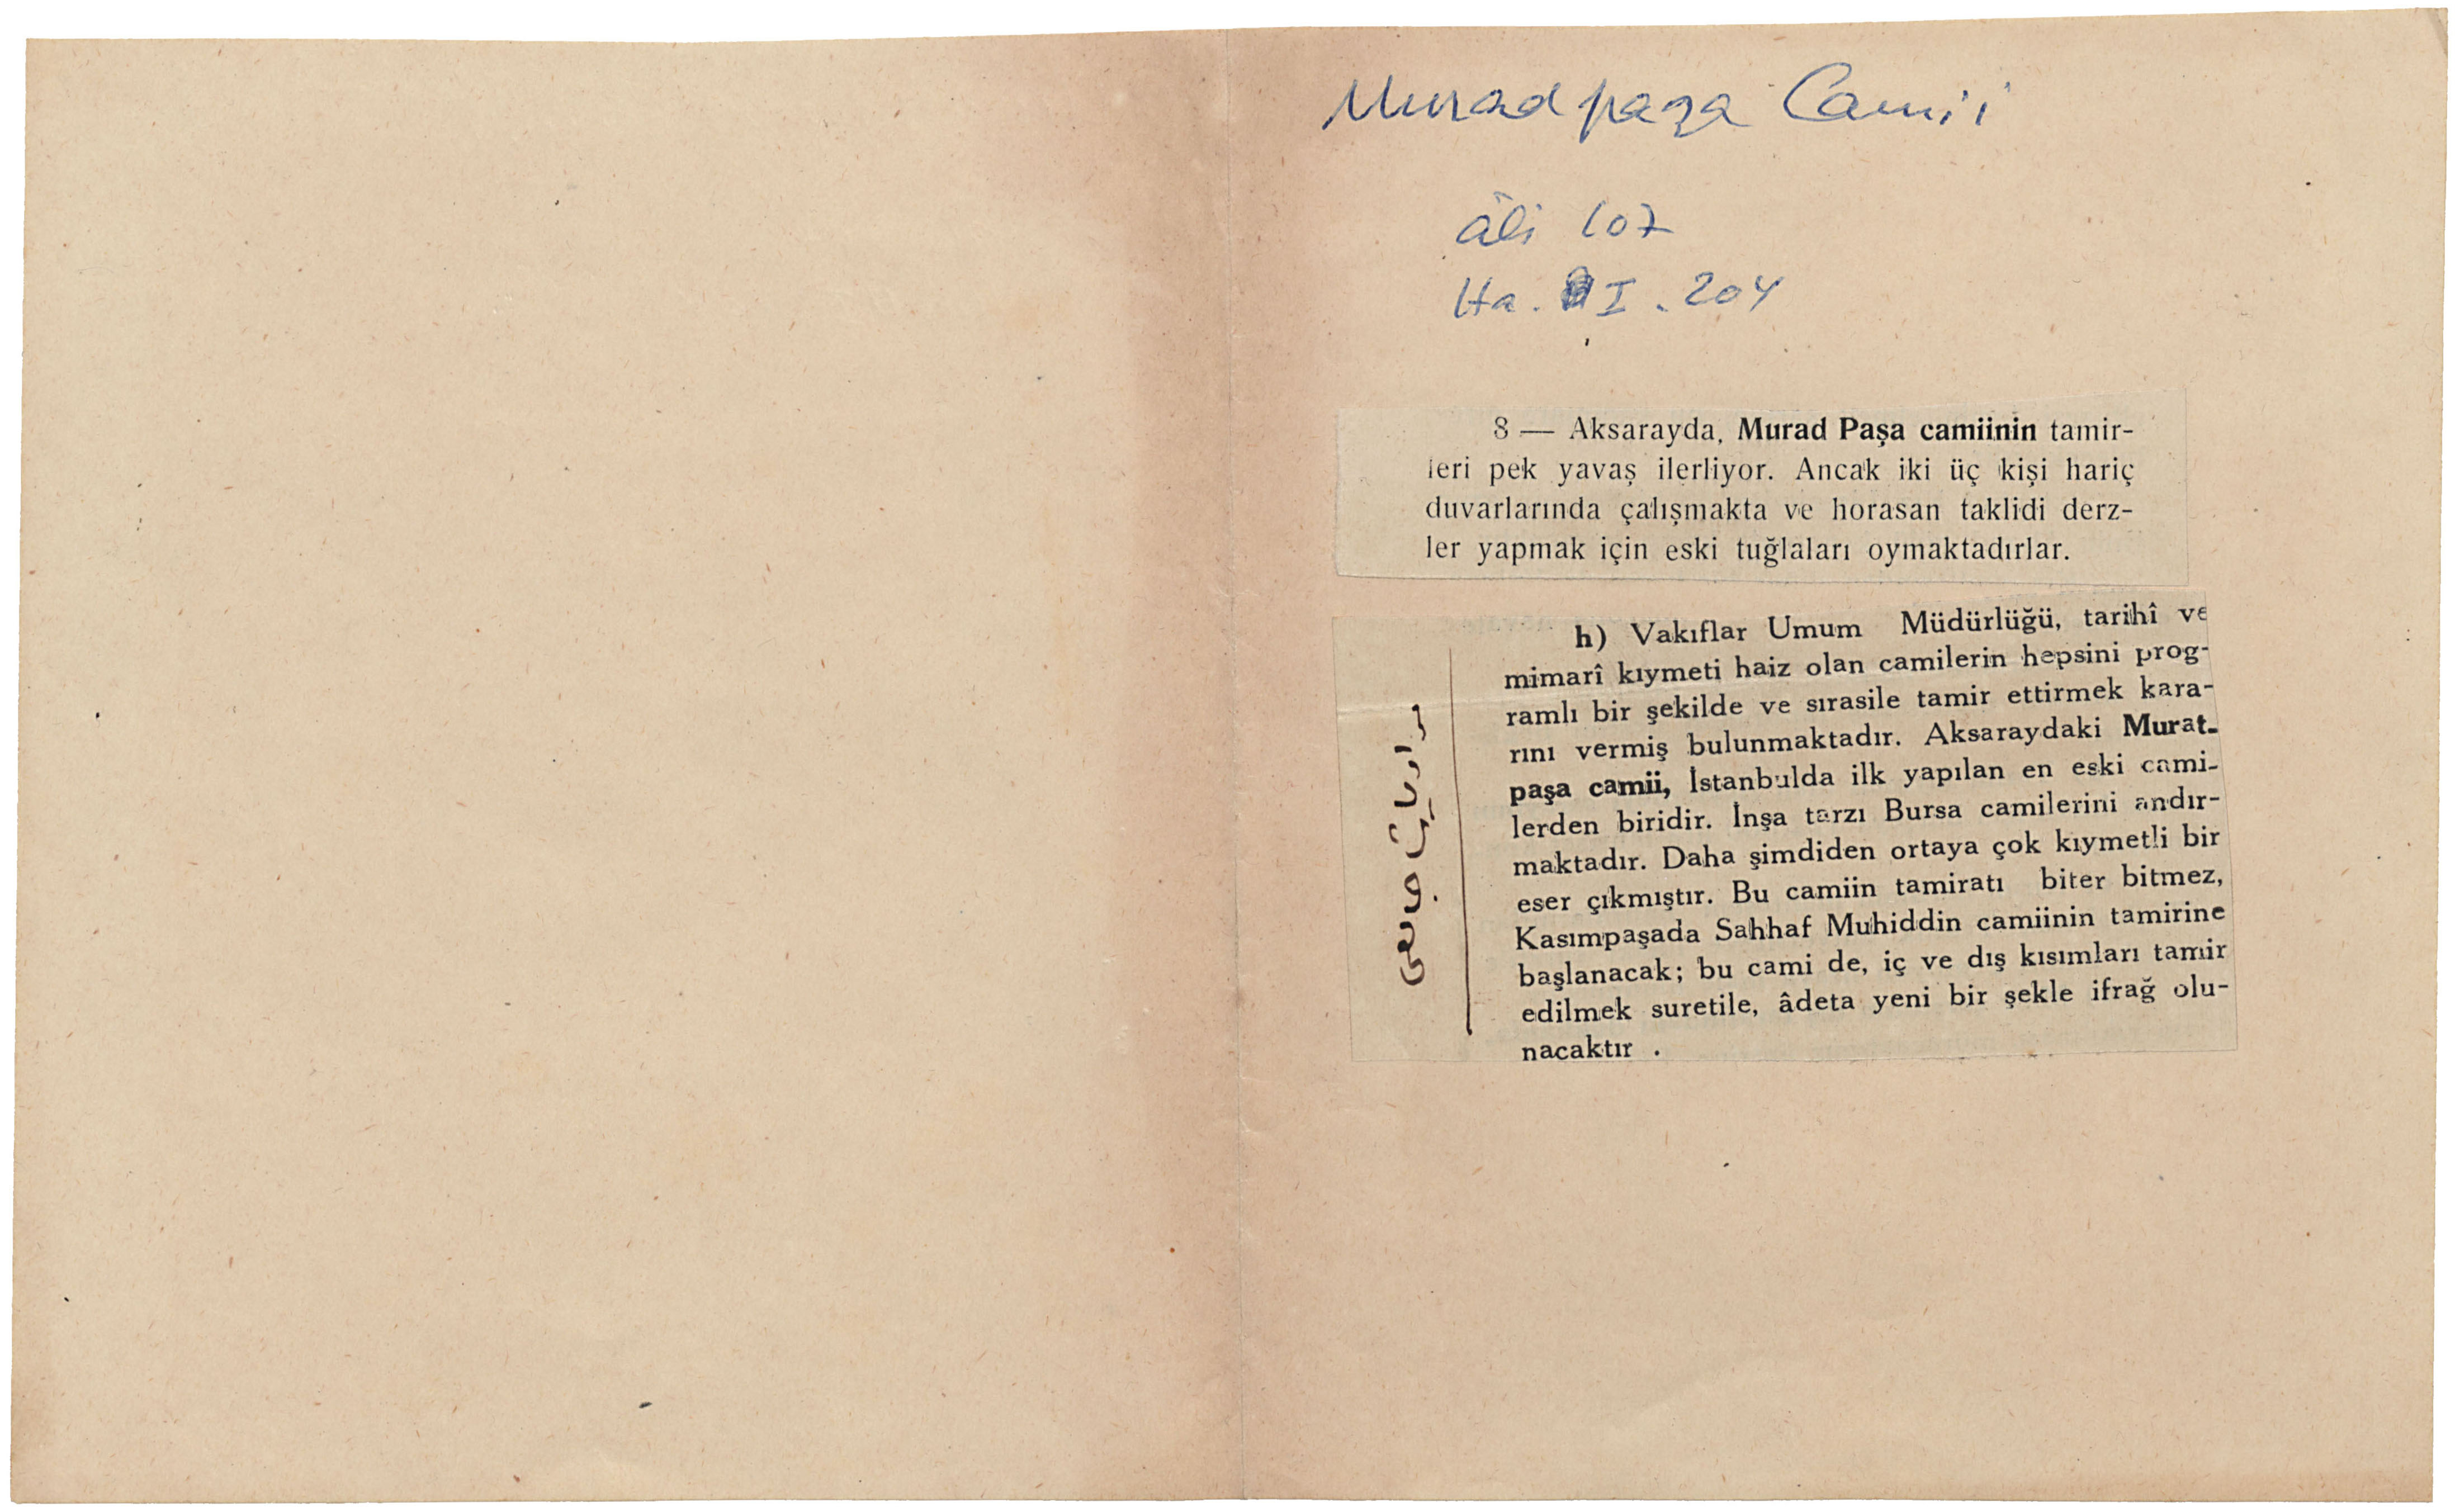 Muradpaşa Camii
âli 107
Ha. I. 204
8 — Aksarayda, Murad Paşa camiinin tamir-
leri pek yavaş ilerliyor. Ancak iki üç kişi hariç
duvarlarında çalışmakta ve horasan taklidi derz-
ler yapmak için eski tuğlaları oymaktadırlar.
h) Vakıflar Umum Müdürlüğü, tarihî ve
mimarî kıymeti haiz olan camilerin hepsini prog-
ramlı bir şekilde ve sırasile tamir ettirmek kara-
rını vermiş bulunmaktadır. Aksaraydaki Murat-
paşa camii, İstanbulda ilk yapılan en eski cami-
lerden biridir. İnşa tarzı Bursa camilerini andır-
maktadır. Daha şimdiden ortaya çok kıymetli bir
eser çıkmıştır. Bu camiin tamiratı biter bitmez,
Kasımpaşada Sahhaf Muhiddin camiinin tamirine
başlanacak; bu cami de, iç ve dış kısımları tamir
edilmek suretile, âdeta yeni bir şekle ifrağ olu-
nacaktır .